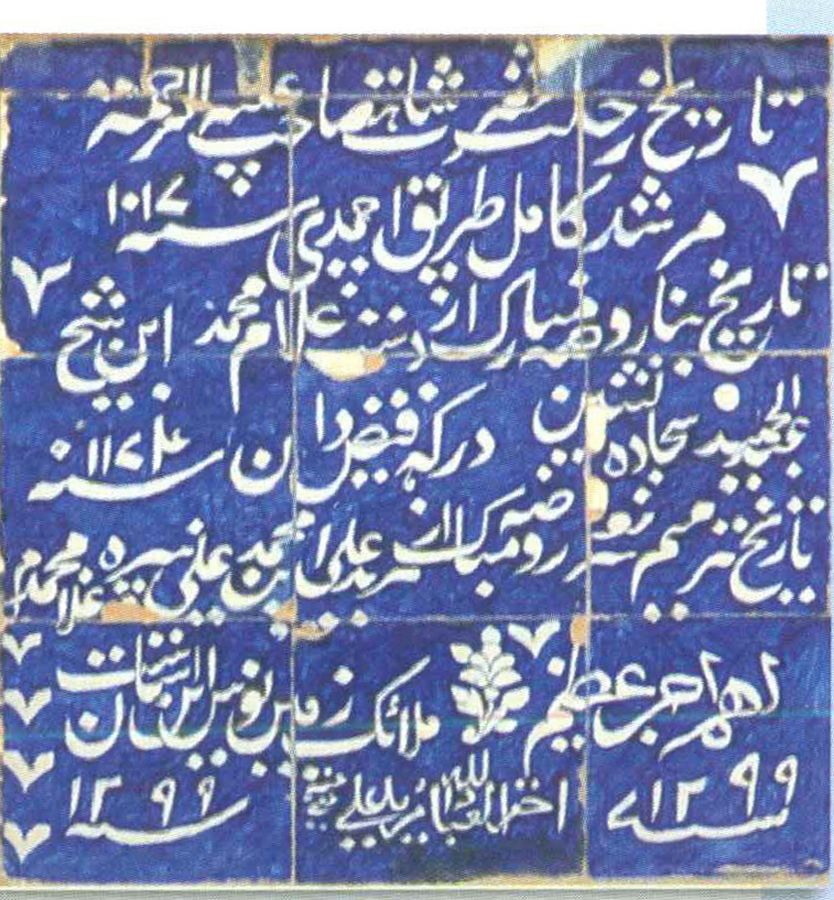 تاریخ رحلت حضرت شاهنصاحب علیه الرحمة
مرشد کامل طریق احمدی سنه ۱۰۱۷
تاریخ بنا روضه مبارک از دست غلام محمد ابن شیخ
عبدالحمید سجاده نشین درگه فیض دان سنه ۱۱۷۴
تاریخ ترمیم نعو روضه مبارک از مرید علی ابن محمد علی نبیره غلام محمد
اجر عظیم ملائک زمین بوس این آستان
سنه ۱۲۹۹ احقر العباد الله مرید علی سنه ۱۲۹۹